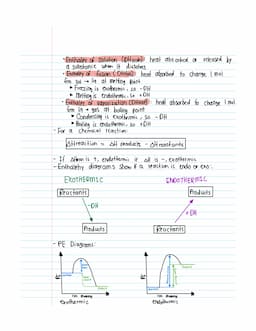 - Enthalpy of solution (ΔHsoln): heat absorbed or released by
a substance when it dissolves
- Enthalpy of fusion (ΔHfus): heat absorbed to change 1 mol
from sol → liq at melting point
• Freezing is exothermic, so -ΔH
• Melting is endothermic, so +ΔH
- Enthalpy of vaporization (ΔHvap): heat absorbed to change 1 mol
from liq → gas at boiling point
• Condensing is exothermic, so -ΔH
• Boiling is endothermic, so +ΔH
- For a chemical reaction:
ΔHreaction = ΔH products - ΔHreactants
- If ΔHrxn is +, endothermic if ΔH is -, exothermic
- Enthalpy diagrams show if a reaction is endo or exo:
EXOTHERMIC
ENDOTHERMIC
Reactants
Products
-ΔH
+ΔH
Products
Reactants
- PE Diagrams:
PE
PE
Exothermic
Endothermic